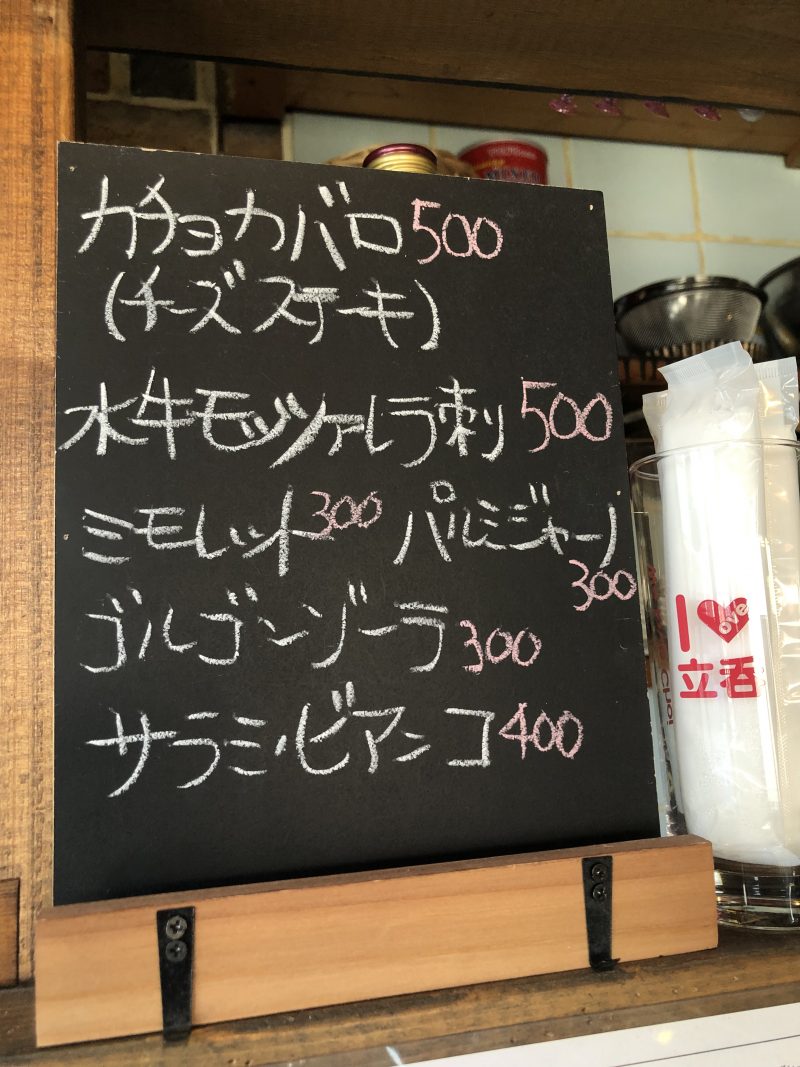 カチョカバロ 500
(チーズステーキ)
水牛モッツァレラ刺 500
ミモレット 300 パルミジャーノ
300
ゴルゴンゾーラ 300
サラミ・ビアンコ 400
I Love
立呑